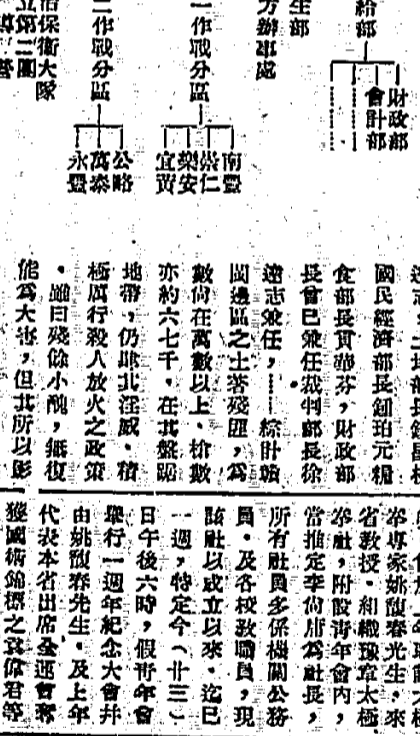 給部
財政部
會計部
生部
方辦事處
一作戰分區
南豐
崇仁
樂安
宜黃
二作戰分區
公略
萬泰
永豐
治保衛大隊
立第二團
國民經濟部長鍾珀元糧
食部長賁菶芬，財政部
長曾巳兼任裁判部長徐
達志兼任，……綜計贛
閩邊區之土著殘匪，爲
數尙在萬數以上、槍數
亦約六七千，在其盤踞
地帶，仍肆其淫威、積
極厲行殺人放火之政策
。雖曰殘餘小醜，無復
能爲大害，但其所以影
拳專家姚馥春先生，來
省敎授。和織豫章太極
拳社，附設靑年會內，
當推定李尙庸爲社長，
所有社員多係機關公務
員。及各校敎職員，現
該社以成立以來。迄巳
一週，特定今（廿三）
日午後六時，假靑年會
舉行一週年紀念大會幷
由姚馥春先生。及上年
代表本省出席全運會奪
獲國術錦標之袁偉君等